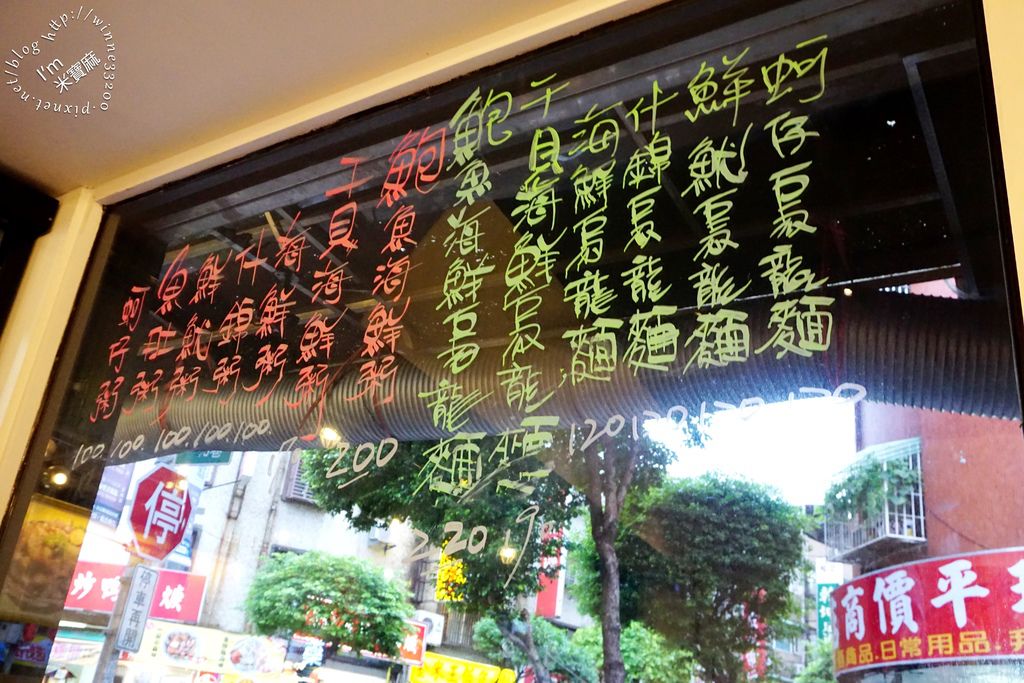 蚵仔烏龍麵
鮮魷烏龍麵
什錦烏龍麵
海鮮烏龍麵
干貝海鮮烏龍麵
鮑魚海鮮烏龍麵
鮑魚海鮮粥
干貝海鮮粥
海鮮粥
什錦粥
鮮魷粥
魚肚粥
蚵仔粥
100. 100. 100. 100. 100.
200
220
120 120 120 120
停
停車再開
炒鴨
商價平
商品.日常用品.
I'm
米寶麻
http://winnie33200.pixnet.net/blog